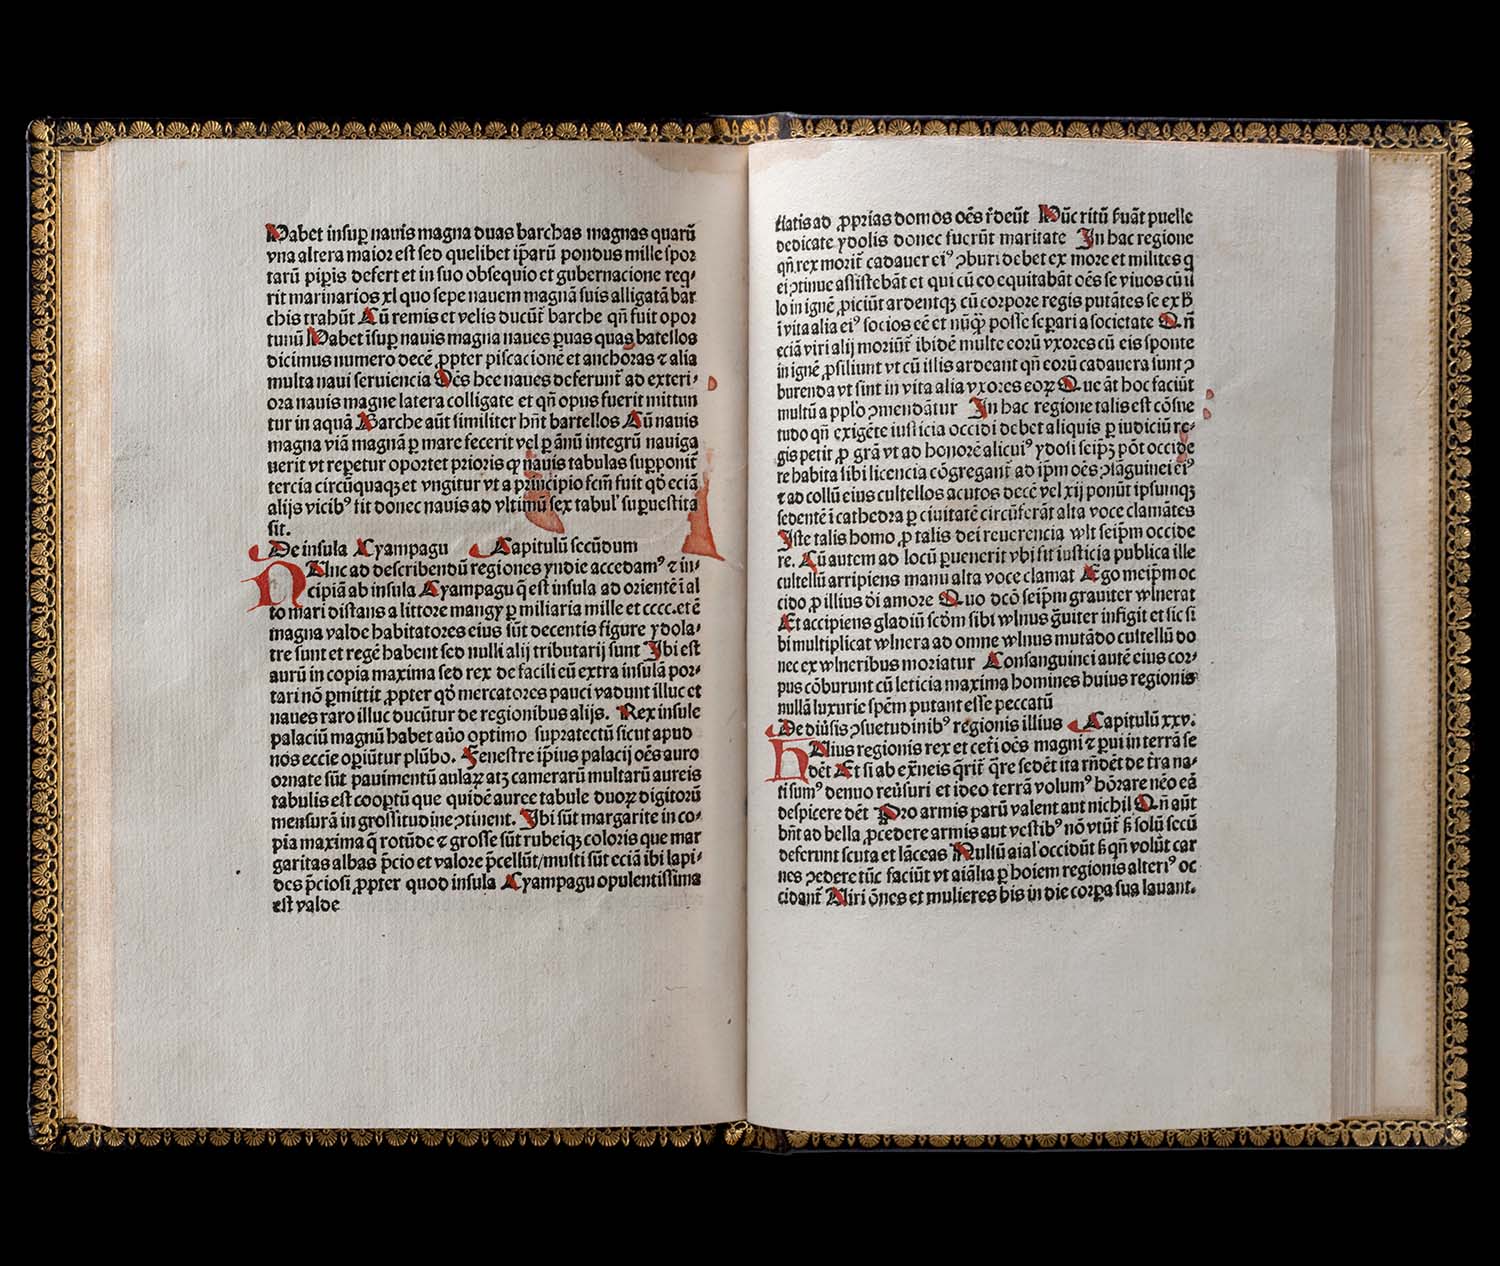 Habet insuꝑ nauis magna duas barchas magnas quarū
vna altera maior est sed quelibet ip̄arū pondus mille spor
tarū pipis defert et in suo obsequio et gubernacione req⸗
rit marinarios xl quo sepe nauem magnā suis alligatā bar
chis trahūt Cū remis et velis ducūt barche qn̄ fuit opor
tunū Habet īsuꝑ nauis magna naues ꝑuas quas batellos
dicimus numero decē ꝓpter piscacionē et anchoras ⁊ alia
multa naui seruiencia Oēs hee naues deferunt̄ ad exteri⸗
ora nauis magne latera colligate et qn̄ opus fuerit mittun
tur in aquā Barche aūt similiter hn̄t bartellos Cū nauis
magna viā magnā ꝑ mare fecerit vel ꝑ ānū integrū nauiga
uerit vt reꝑetur oportet prioris qꝫ nauis tabulas supponit̄
tercia circūquaqꝫ et vngitur vt a principio fcm̄ fuit qd̄ eciā
alijs vicibꝰ fit donec nauis ad vltimū sex tabul' suꝑuestita
sit.
De insula Cyampagu Capitulū secūdum
Nunc ad describendū regiones yndie accedamꝰ ⁊ in⸗
cipiā ab insula Cyampagu q̄ est insula ad orientē ī al
to mari distans a littore mangy ꝑ miliaria mille et cccc. et ē
magna valde habitatores eius sūt decentis figure ydola⸗
tre sunt et regē habent sed nulli alij tributarij sunt Ibi est
aurū in copia maxima sed rex de facili eū extra insulā por⸗
tari nō ꝑmittit ꝓpter qd̄ mercatores pauci vadunt illuc et
naues raro illuc ducūtur de regionibus alijs. Rex insule
palaciū magnū habet aūo optimo supratectū sicut apud
nos eccie oꝑiūtur plūbo. Fenestre ip̄ius palacij oēs auro
ornate sūt pauimentū aulaꝝ atꝫ camerarū multarū aureis
tabulis est cooꝑtū que quidē auree tabule duoꝝ digitorū
mensurā in grossitudine ꝯtinent. Ibi sūt margarite in co⸗
pia maxima q̄ rotūde ⁊ grosse sūt rubeiqꝫ coloris que mar
garitas albas p̄cio et valore p̄cellūt/multi sūt eciā ibi lapi⸗
des p̄ciosi ꝓpter quod insula Cyampagu opulentissima
est valde
tlatis ad ꝓprias domos oēs r̄deūt Hūc ritū ẜuāt puelle
dedicate ydolis donec fuerūt maritate In hac regione
qn̄ rex morit̄ cadauer eiꝰ ꝯburi debet ex more et milites q
ei ꝯtinue assistebāt et qui cū eo equitabāt oēs se viuos cū il
lo in ignē ꝓiciūt ardentqꝫ cū corpore regis putātes se ex ħ
ī vita alia eiꝰ socios eē et nūqꝫ posse seꝑari a societate Qn̄
eciā viri alij moriūt̄ ibidē multe eorū vxores cū eis sponte
in ignē ꝓsiliunt vt cū illis ardeant qn̄ eorū cadauera sunt ꝯ
burenda vt sint in vita alia vxores eoꝝ Que āt hoc faciūt
multū a ppl'o ꝯmendātur In hac regione talis est cōsue
tudo qn̄ exigēte iusticia occidi debet aliquis ꝑ iudiciū re⸗
gis petit ꝓ grā vt ad honorē alicuiꝰ ydoli seip̄ꝫ pōt occide
re habita sibi licencia cōgregant̄ ad ip̄m oēs ꝯsāguinei eiꝰ
⁊ ad collū eius cultellos acutos decē vel xij ponūt ipsumqꝫ
sedentē ī cathedra ꝑ ciuitatē circūferāt alta voce clamātes
Iste talis homo ꝓ talis dei reuerencia wlt seip̄m occide
re. Cū autem ad locū ꝑuenerit vbi fit iusticia publica ille
cultellū arripiens manu alta voce clamat Ego meip̄m oc
cido ꝓ illius dī amore Quo dcō seip̄m grauiter wlnerat
Et accipiens gladiū scd̄m sibi wlnus ḡuiter infigit et sic si
bi multiplicat wlnera ad omne wlnus mutādo cultellū do
nec ex wlneribus moriatur Consanguinei autē eius cor⸗
pus cōburunt cū leticia maxima homines huius regionis
nullā luxurie spēm putant esse peccatū
De diūsis ꝯsuetudinibꝰ regionis illius Capitulū xxv.
Hvlius regionis rex et cet̄i oēs magni ⁊ ꝑui in terrā se
dēt Et si ab ex̄neis q̄rit̄ q̄re sedēt ita rn̄dēt de t̄ra na⸗
ti sumꝰ denuo reūsuri et ideo terrā volumꝰ hōrare nēo eā
despicere dēt Pro armis parū valent aut nichil Qn̄ aūt
hn̄t ad bella ꝓcedere armis aut vestibꝰ nō vtūt̄ ẜ solū secū
deferunt scuta et lāceas Nullū aial' occidūt ẜ qn̄ volūt car
nes ꝯedere tūc faciūt vt aiālia ꝑ hoiem regionis alteriꝰ oc
cidant̄ Viri ōnes et mulieres bis in die corꝑa sua lauant.